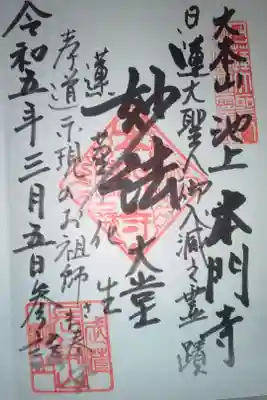 大本山 池上 本門寺
日蓮大聖人御入滅之霊蹟
妙法
大堂
蓮華化生
孝道示現のお祖師さま
令和五年三月五日参詣